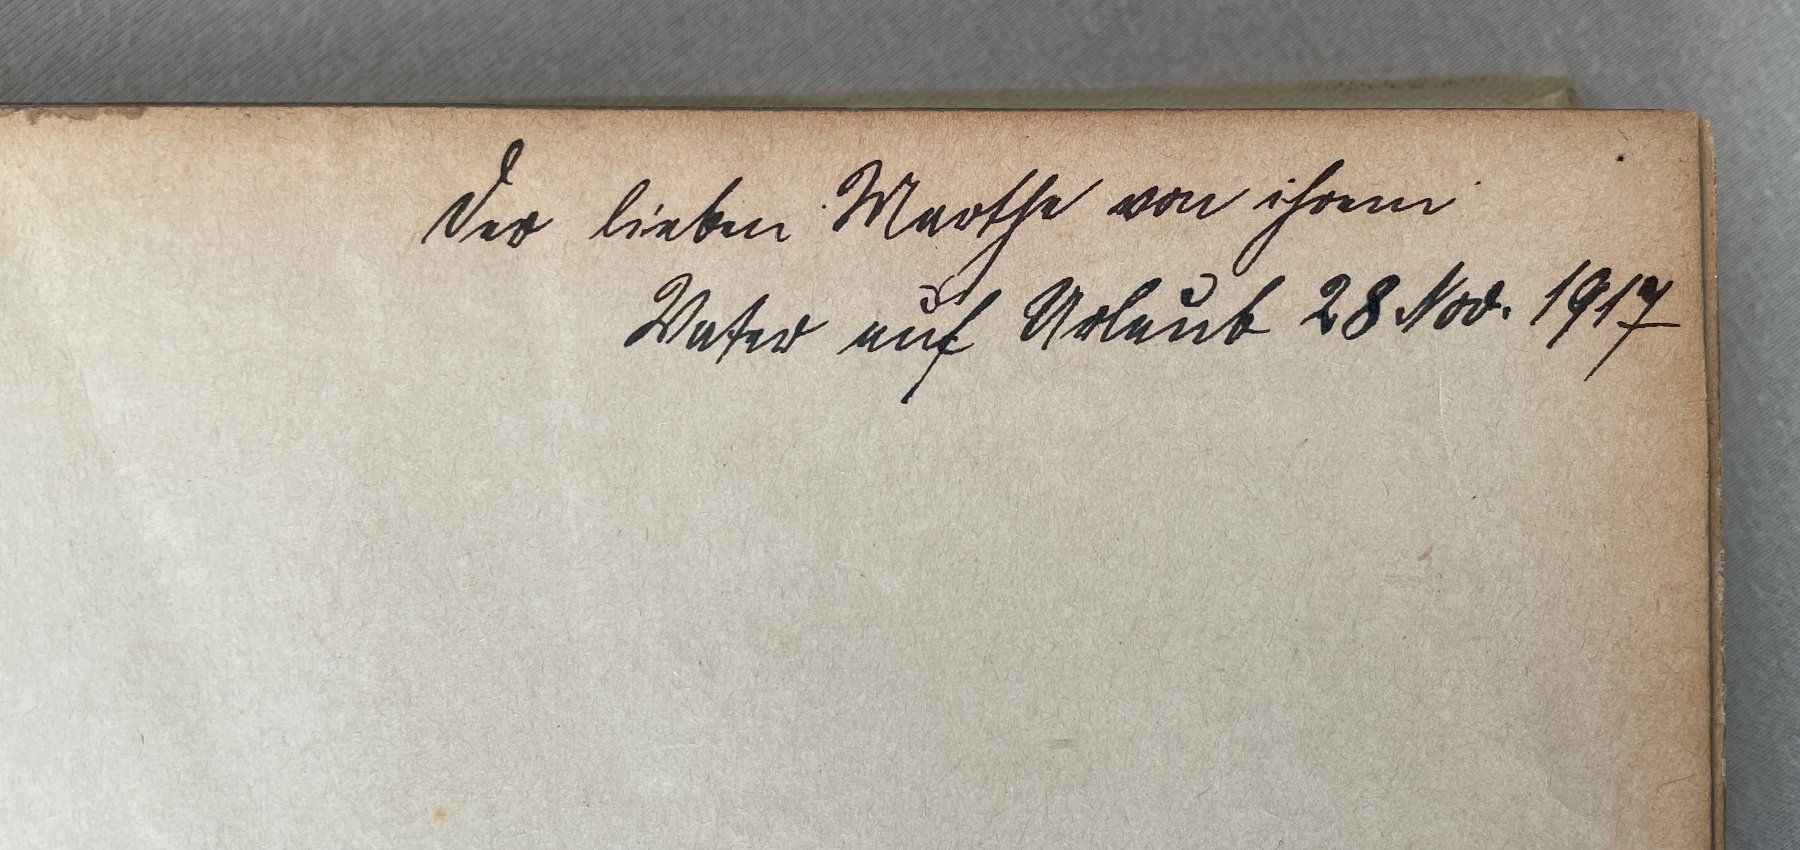 Der lieben Marthe von ihrem
Vater auf Urlaub 28 Nov. 1917